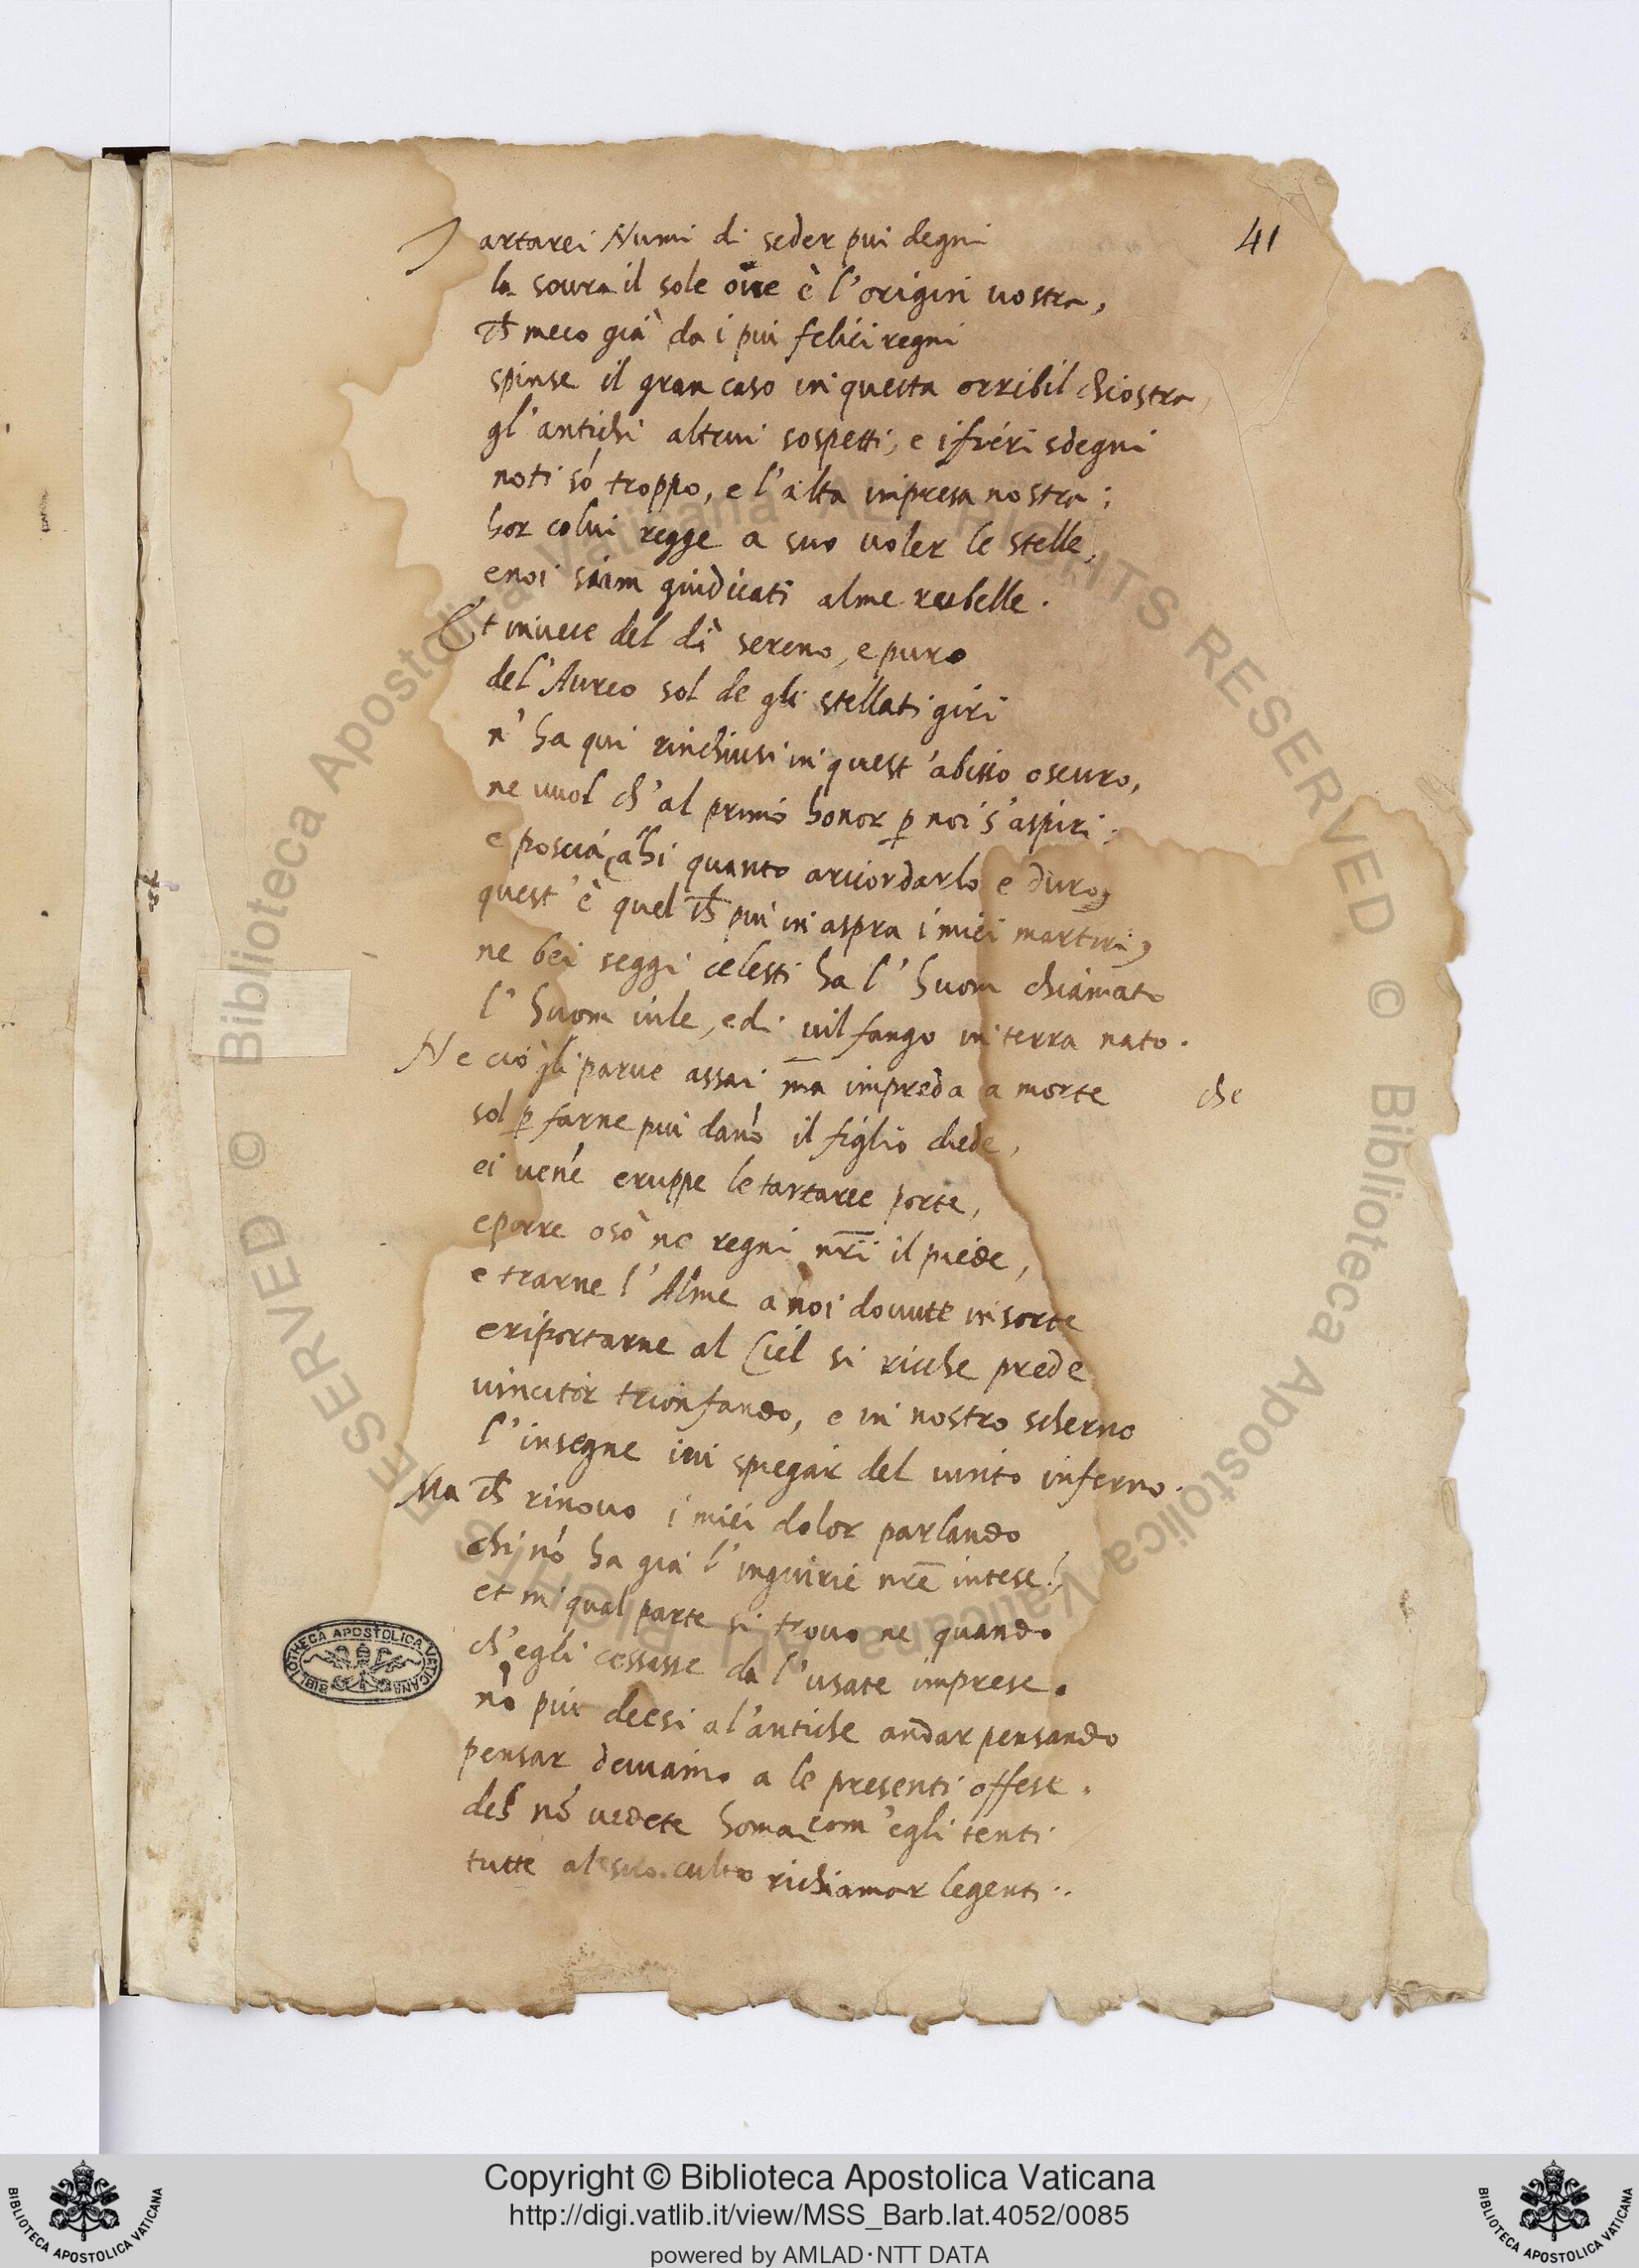 41
Tartarei Numi di seder piu degni
la sovra il sole ove è l'origin vostra,
ch̃ meco già da i piu felici regni
spinse il gran caso in questa orribil chiostra,
gl'antichi altrui sospetti, e i fieri sdegni
noti só troppo, e l'alta impresa nostra;
hor colui regge a suo voler le stelle,
e noi siam giudicati alme rubelle.
Et invece del dì sereno, e puro
del'Aureo sol de gli stellati giri
n'ha qui rinchiusi in quest'abisso oscuro,
ne vuol ch'al primó honor ꝑ noi s'aspiri;
e poscia (ahi quanto arricordarlo e duro)
quest'è quel ch̃ piu in aspra i miei martiri)
ne bei seggi celesti ha l'huom chiamato
l'huom vile, e di vil fango in terra nato.
Ne ciò gli parve assai m̅a impreda a morte che
sol ꝑ farne piu danó il figlio diede,
ei vené e ruppe le tartaree porte,
e porre osò ne regni nr̃i il piede,
e trarne l'Alme a noi dovute in sorte
e riportarne al Ciel si ricche prede
vincitor trionfando, e in nostro scherno
l'insegne ivi spiegar del vinto inferno.
Ma ch̃ rinovo i miei dolor parlando
chi nó ha già l'ingiurie nr̃e intese?
et in qual parte si trovo ne quando
ch'egli cessasse da l'usate imprese.
nó piu deesi a l'antiche andar pensando
pensar deviamo a le presenti offese.
deh nó vedete homai com'egli tenti
tutte al suo culto richiamar le genti..
BIBLIOTHECA APOSTOLICA VATICANA
© Biblioteca Apostolica Vaticana ALL RIGHTS RESERVED
© Biblioteca Apostolica Vaticana ALL RIGHTS RESERVED
Copyright © Biblioteca Apostolica Vaticana
http://digi.vatlib.it/view/MSS_Barb.lat.4052/0085
powered by AMLAD·NTT DATA
BIBLIOTECA APOSTOLICA VATICANA
BIBLIOTECA APOSTOLICA VATICANA